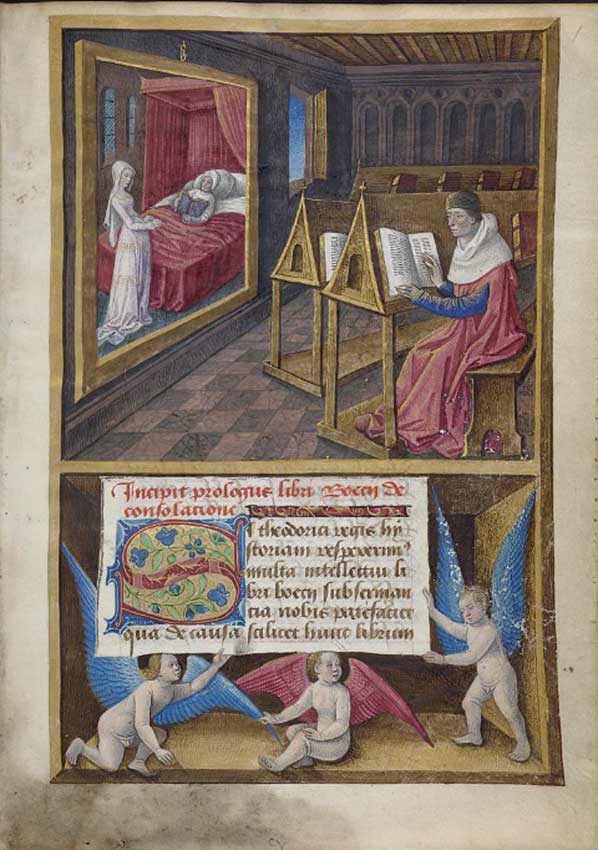 Incipit prologus libri Boecii de
consolatione
SI theodorici regis hy
storiam respexerimꝰ
multa intellectui li
bri boecii subseruan
tia nobis patefaciet
qua de causa scilicet hunc librum